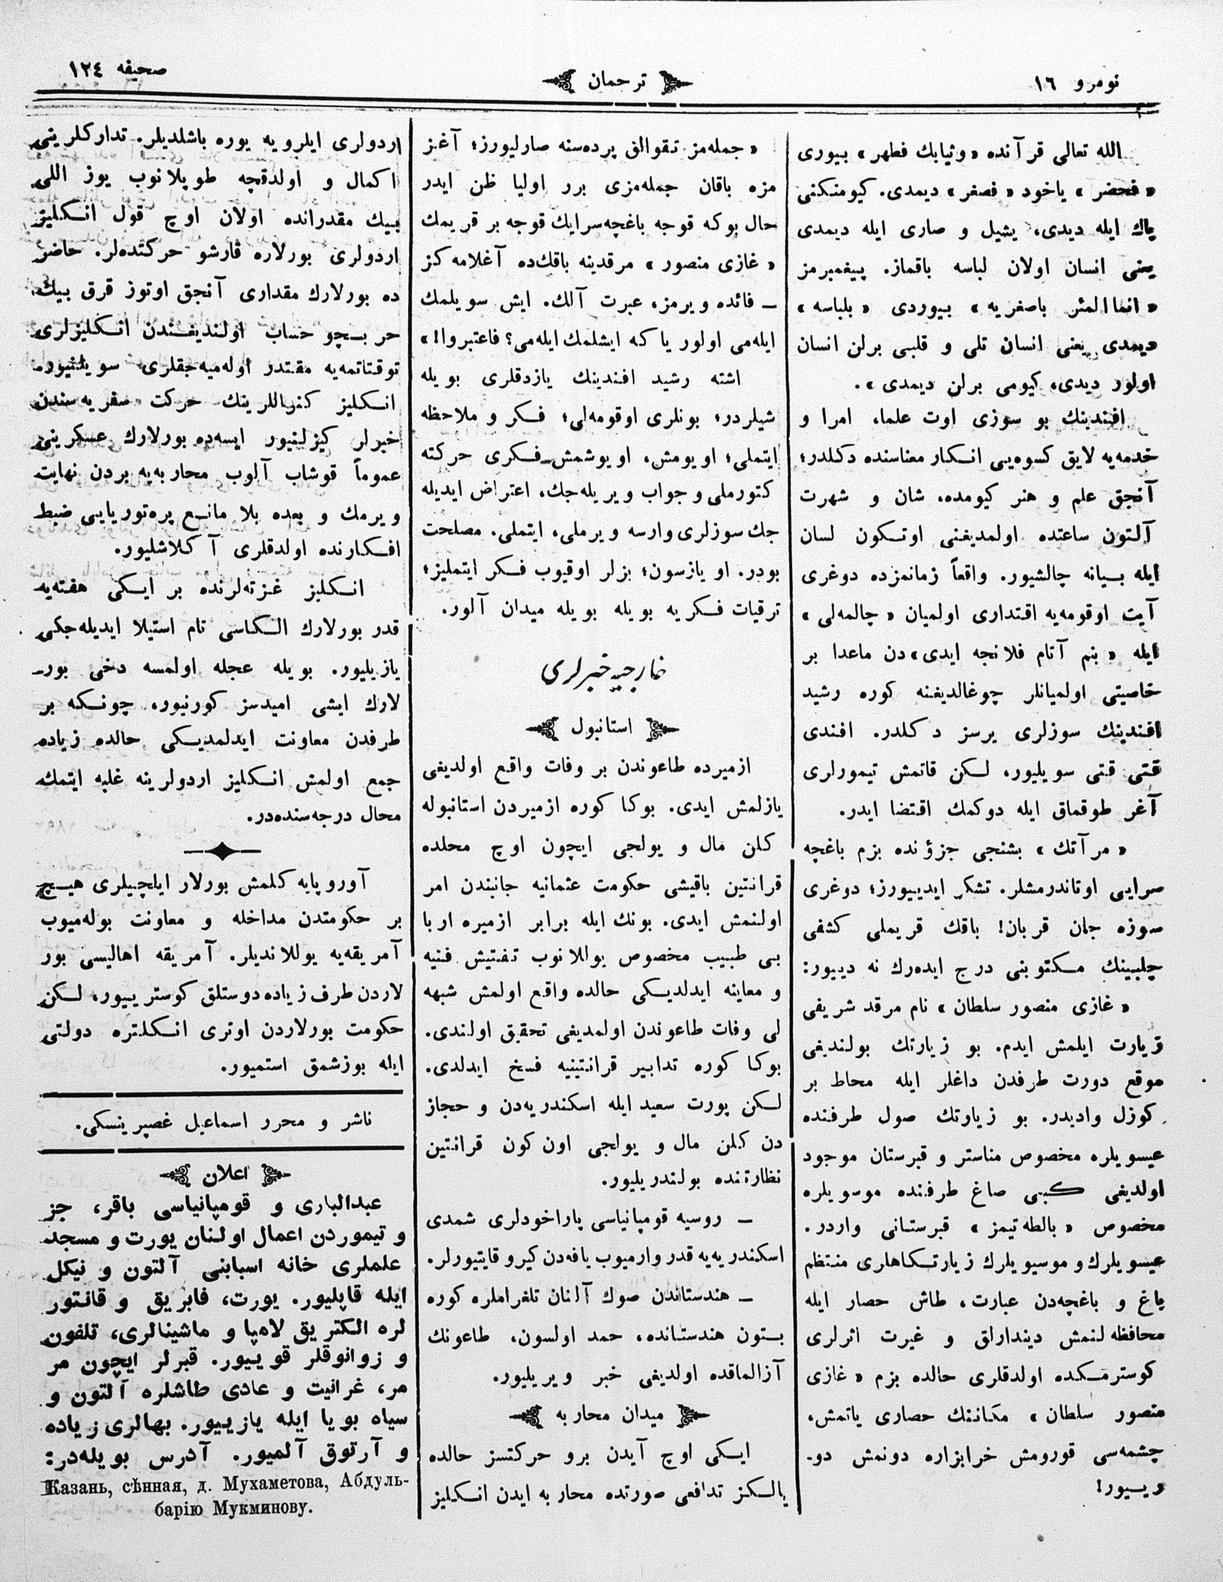 نومرو ١٦
ترجمان
صحيفه ١٢٤
الله تعالى قرآنده «وثيابك فطهر» بيورى
«فحضر» ياخود «فصفر» ديمدى. كيومنكنى
پاك ايله ديدى، يشيل و صارى ايله ديمدى
يعنى انسان اولان لباسه باقماز. پيغمبرمز
«انما المئر باصغريه» بيوردى «بلباسه»
ديمدى يعنى انسان تلى و قلبى برلن انسان
اولور ديدى، كيومى برلن ديمدى».
افندينك بو سوزى اوت علما، امرا و
خدمه‌يه لايق كسوه‌يى انكار معناسنده دكلدر؛
آنجق علم و هنر كيومده، شان و شهرت
آلتون ساعتده اولمديغنى اوتكون لسان
ايله بيانه چالشيور. واقعاً زمانمزده دوغرى
آيت اوقومه‌يه اقتدارى اولميان «چالمه‌لى»
ايله «بنم آتام فلانجه ايدى»دن ماعدا بر
خاصيتى اولميانلر چوغالديغنه كوره رشيد
افندينك سوزلرى يرسز دكلدر. افندى
قتى قتى سويليور، لكن قاتمش تيمورلرى
آغر طوقماق ايله دوكمك اقتضا ايدر.
«مرآتك» بشنجى جزؤنده بزم باغچه
سرايى اوتاندرمشلر. تشكر ايدييورز؛ دوغرى
سوزه جان قربان! باقك قريملى كشفى
چلبينك مكتوبنى درج ايده‌رك نه دييور:
«غازى منصور سلطان» نام مرقد شريفى
زيارت ايلمش ايدم. بو زيارتك بولنديغى
موقع دورت طرفدن داغلر ايله محاط بر
كوزل واديدر. بو زيارتك صول طرفنده
عيسويلره مخصوص مناستر و قبرستان موجود
اولديغى كبى صاغ طرفنده موسويلره
مخصوص «بالطه تيمز» قبرستانى واردر.
عيسويلرك و موسيويلرك زيارتكاهلرى منتظم
باغ و باغچه‌دن عبارت، طاش حصار ايله
محافظه لنمش ديندارلق و غيرت اثرلرى
كوسترمكده اولدقلرى حالده بزم «غازى
منصور سلطان» مكاننك حصارى ياتمش،
چشمه‌سى قورومش خرابزاره دونمش دو-
رييور!
«جمله‌مز تقوالق پرده‌سنه صارليورز؛ آغيز
مزه باقان جمله‌مزى برر اوليا ظن ايدر
حال بوكه قوجه باغچه‌سرايك قوجه بر قريمك
«غازى منصور» مرقدينه باقك‌ده آغلامه كز
— فائده ويرمز، عبرت آلك. ايش سويلمك
ايله‌مى اولور ياكه ايشلمك ايله‌مى؟ فاعتبروا!»
اشته رشيد افندينك يازدقلرى بويله
شيلردر؛ بونلرى اوقومه‌لى؛ فكر و ملاحظه
ايتملى؛ اويومش، اويوشمش فكرى حركته
كتورملى و جواب ويريله‌جك، اعتراض ايديله
جك سوزلرى وارسه ويرملى، ايتملى. مصلحت
بودر. او يازسون؛ بزلر اوقيوب فكر ايتمليز؛
ترقيات فكريه بويله بويله ميدان آلور.
خارجيه خبرلرى
استانبول
ازميرده طاعوندن بر وفات واقع اولديغى
يازلمش ايدى. بوكا كوره ازميردن استانبوله
كلن مال و يولجى ايچون اوچ محلده
قرانتين باقيشى حكومت عثمانيه جانبندن امر
اولنمش ايدى. بونك ايله برابر ازميره اربا
بى طبيب مخصوص يوللانوب تفتيش فنيه
و معاينه ايدلديكى حالده واقع اولمش شبهه
لى وفات طاعوندن اولمديغى تحقيق اولندى.
بوكا كوره تدابير قرانتينيه فسخ ايدلدى.
لكن پورت سعيد ايله اسكندريه‌دن و حجاز
دن كلن مال و يولجى اون كون قرانتين
نظارتنده بولندريليور.
— روسيه قومپانياسى پاراخودلرى شمدى
اسكندريه‌يه قدر وارميوب يافه‌دن كيرو قايتيورلر.
— هندستاندن صوك آلنان تلغراملره كوره
بتون هندستانده، حمد اولسون، طاعونك
آزالماقده اولديغى خبر ويريليور.
ميدان محاربه
ايكى اوچ آيدن برو حركتسز حالده
يالكز تدافعى صورتده محاربه ايدن انكليز
اردولرى ايلرويه يوره باشلديلر. تداركلرينى
اكمال و اولدقچه طوپلانوب يوز اللى
بيك مقدرانده اولان اوچ قول انكليز
اردولرى بورلاره قارشو حركتده‌لر. حاضر
ده بورلارك مقدارى آنجق اوتوز قرق بيك
حربچو حساب اولنديغندن انكليزلرى
توقتاتمه‌يه مقتدر اوله‌ميه‌جقلرى سويلنيور.
انكليز كنراللرينك حركت سفريه‌سندن
خبرلر كيزلنيور ايسه‌ده بورلارك عسكرينى
عموماً قوشاب آلوب محاربه‌يه بردن نهايت
ويرمك و بعده بلا مانع پره‌توريايى ضبط
افكارنده اولدقلرى آكلاشليور.
انكليز غزته‌لرنده بر ايكى هفته‌يه
قدر بورلارك الكاسى تام استيلا ايديله‌جكى
يازيليور. بويله عجله اولمسه دخى بور-
لارك ايشى اميدسز كورنيور، چونكه بر
طرفدن معاونت ايدلمديكى حالده زياده
جمع اولمش انكليز اردولرينه غلبه ايتمك
محال درجه‌سنده‌در.
آوروپايه كلمش بورلار ايلچيلرى هيچ
بر حكومتدن مداخله و معاونت بوله‌ميوب
آمريقه‌يه يوللانديلر. آمريقه اهاليسى بور
لاردن طرف زياده دوستلق كوسترييور، لكن
حكومت بورلاردن اوترى انكلتره دولتى
ايله بوزشمق استميور.
ناشر و محرر اسماعيل غصپرينسكى.
اعلان
عبدالبارى و قومپانياسى باقر، جز
و تيموردن اعمال اولنان يورت و مسجد
علملرى خانه اسبابنى آلتون و نيكل
ايله قاپليور. يورت، فابريق و قانتور
لره الكتريق لامپا و ماشينالرى، تلفون
و زوانوقلر قوييور. قبرلر ايچون مر
مر، غرانيت و عادى طاشلره آلتون و
سياه بويا ايله يازييور. بهالرى زياده
و آرتوق آلميور. آدرس بويله‌در:
Казань, сѣнная, д. Мухаметова, Абдуль-
барію Мукминову.